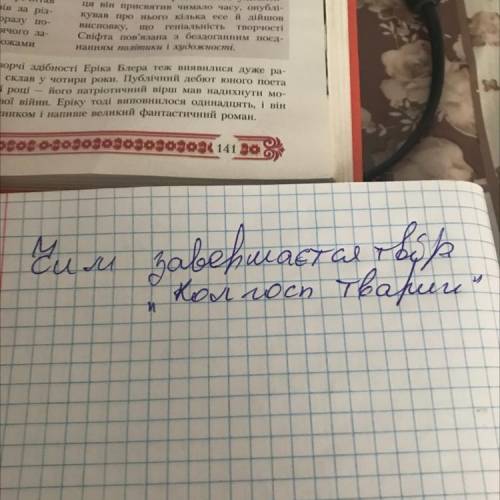 ня він присвятив чимало часу, опублі-
ів за різ- кував про нього кілька есе й дійшов
оразу по- висновку, що геніальність творчості
ячого за- Свіфта пов'язана з бездоганним поєд-
ожами нанням політики і художності.
ворчі здібності Еріка Блера теж виявилися дуже ра-
склав у чотири роки. Публічний дебют юного поета
році — його патріотичний вірш мав надихнути мо-
вої війни. Еріку тоді виповнилося одинадцять, і він
и напише великий фантастичний роман.
141
Чим завершається твір
"Колгосп тварин"